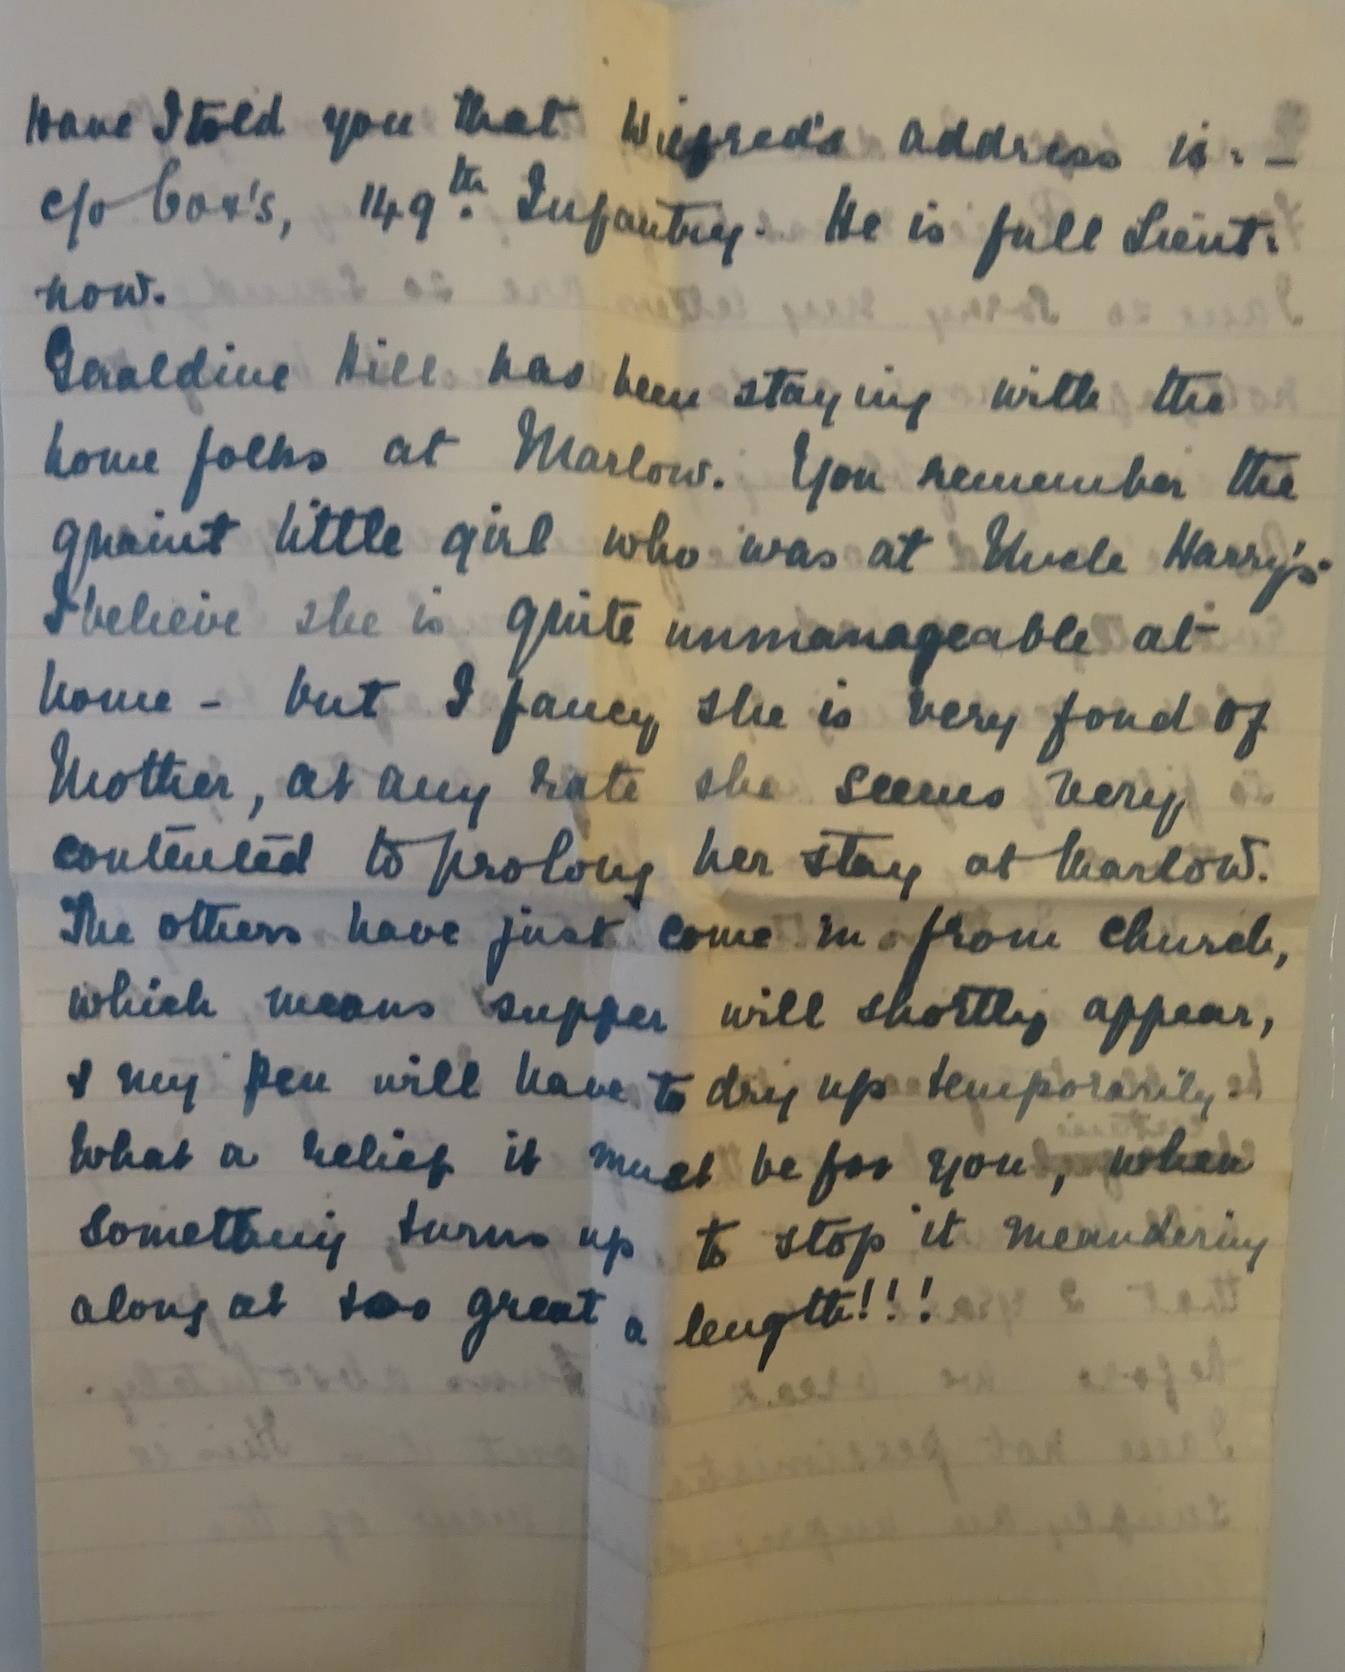 Have I told you that Wilfred's address is: -
c/o Cox's, 149th. Infantry. He is full Lieut.
now.
Geraldine Hill has been staying with the
home folks at Marlow. You remember the
quaint little girl who was at Uncle Harry's.
I believe she is quite unmanageable at
home - but I fancy she is very fond of
Mother, at any rate she seems very
contented to prolong her stay at Marlow.
The others have just come in from church,
which means supper will shortly appear,
& my pen will have to dry up temporarily.
What a relief it must be for you, when
something turns up to stop it meandering
along at too great a length!!!